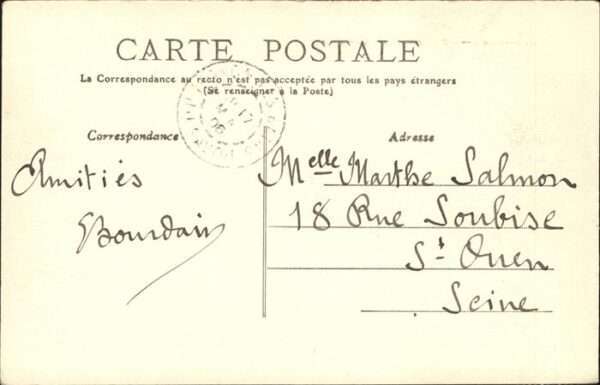 CARTE POSTALE
La Correspondance au recto n'est pas acceptée par tous les pays étrangers
(Se renseigner à la Poste)
Correspondance
Adresse
Amitiés
Bourdain
Melle Marthe Salmon
18 Rue Soubise
St Ouen
Seine